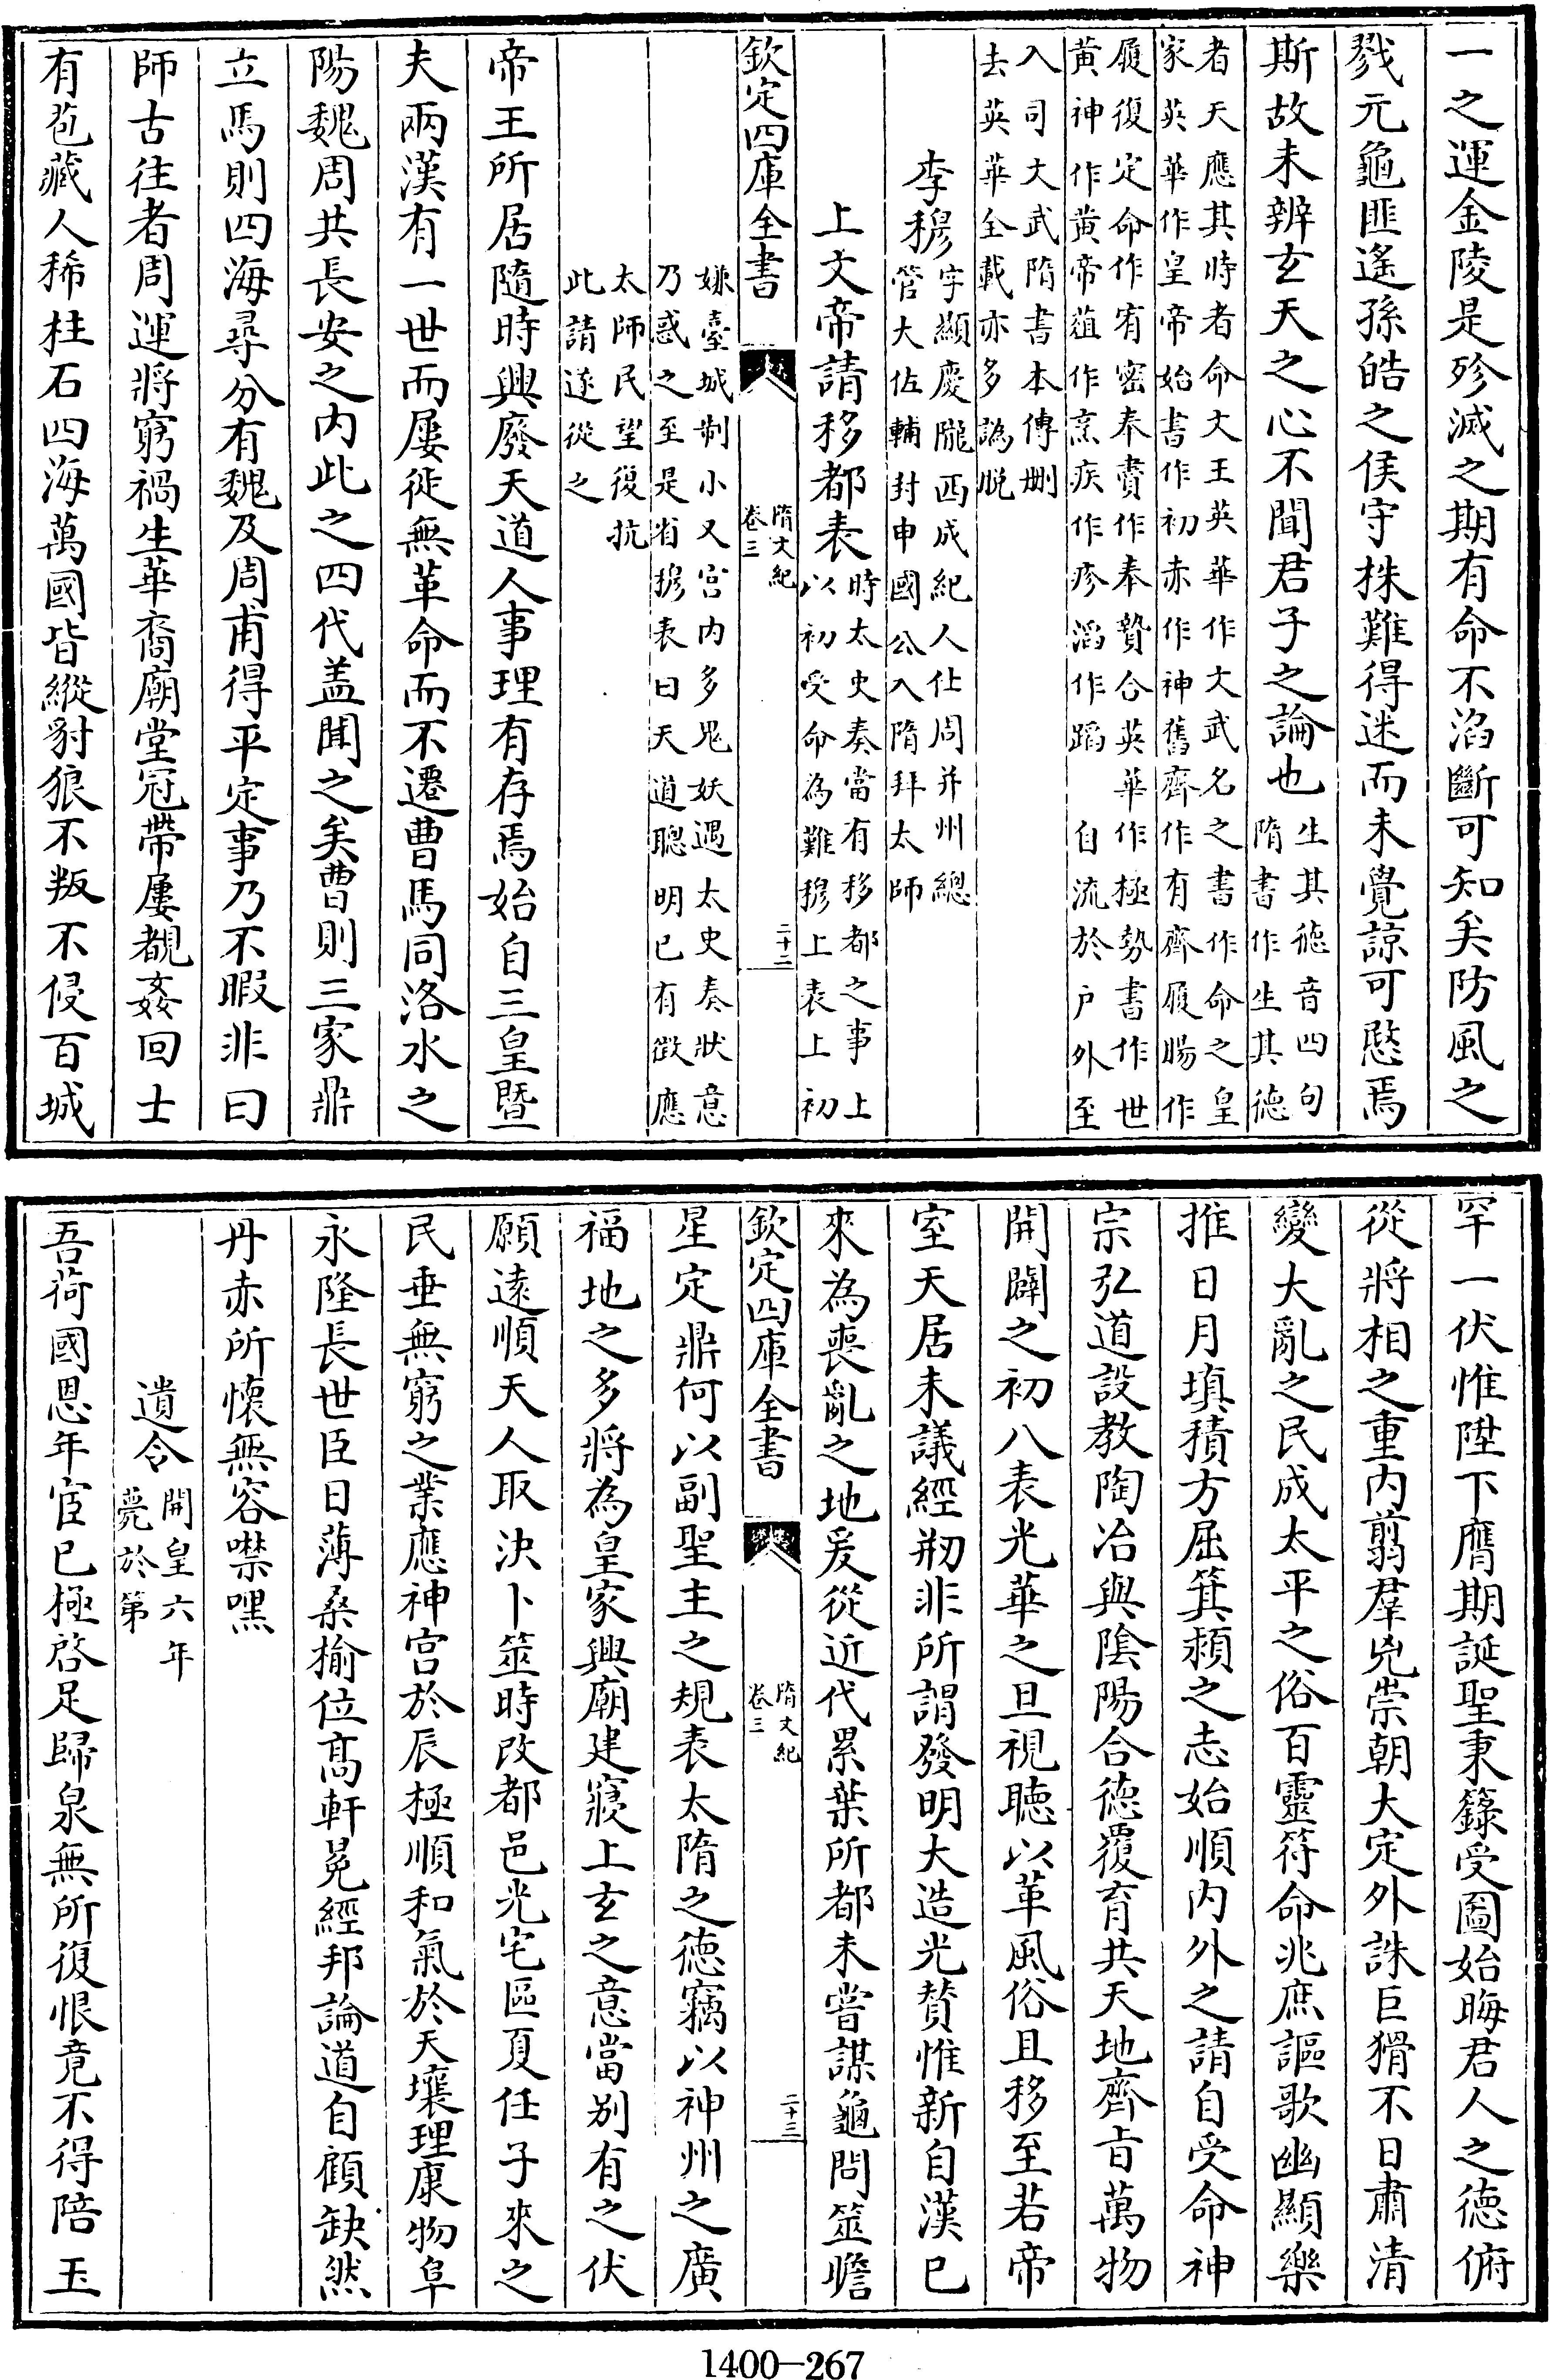 一之運金陵是殄滅之期有命不滔斷可知矣防風之
戮元龜匪遙孫皓之侯守株難得迷而未覺諒可愍焉
斯故未辨玄天之心不聞君子之論也生其德音四句
隋書作生其德
者天應其時者命文王英華作文武名之書作命之皇
家英華作皇帝始書作初赤作神舊齊作有齊履腸作
履復定命作宥密奉賚作奉贄合英華作極勢書作世
黄神作黄帝蒩作烹疾作疹滔作蹈 自流於户外至
入司大武隋書本傳刪
去英華全載亦多譌脱
李穆字顯慶隴西成紀人仕周并州總
管大佐輔封申國公入隋拜太師
上文帝請移都表時太史奏當有移都之事上
以初受命為難穆上表上初
欽定四庫全書
隋文紀
卷三
二十二
嫌臺城制小又宫内多鬼妖遇太史奏狀意
乃惑之至是省穆表曰天道聰明已有徵應
太師民望復抗
此請遂從之
帝王所居隨時興廢天道人事理有存焉始自三皇暨
夫兩漢有一世而屢徙無革命而不遷曹馬同洛水之
陽魏周共長安之内此之四代盖聞之矣曹則三家鼎
立馬則四海尋分有魏及周甫得平定事乃不暇非曰
師古往者周運將窮禍生華裔廟堂冠帶屢覩姦回士
有苞藏人稀柱石四海萬國皆縱豺狼不叛不侵百城
罕一伏惟陛下膺期誕聖秉籙受圖始晦君人之德俯
從將相之重内翦羣兇崇朝大定外誅巨猾不日肅清
變大亂之民成太平之俗百靈符命兆庶謳歌幽顯樂
推日月填積方屈箕潁之志始順内外之請自受命神
宗弘道設教陶冶與陰陽合德覆育共天地齊㫖萬物
開闢之初八表光華之旦視聽以革風俗且移至若帝
室天居未議經剏非所謂發明大造光賛惟新自漢已
來為喪亂之地爰從近代累葉所都未嘗謀龜問筮瞻
欽定四庫全書
隋文紀
卷三
二十三
星定鼎何以副聖主之規表太隋之德竊以神州之廣
福地之多將為皇家興廟建寢上玄之意當别有之伏
願遠順天人取決卜筮時改都邑光宅區夏任子來之
民垂無窮之業應神宫於辰極順和氣於天壤理康物阜
永隆長世臣日薄桑榆位髙軒冕經邦論道自顧缺然
丹赤所懷無容噤嘿
遺令開皇六年
薨於第
吾荷國恩年宦已極啓足歸泉無所復恨竟不得陪玉
1400-267